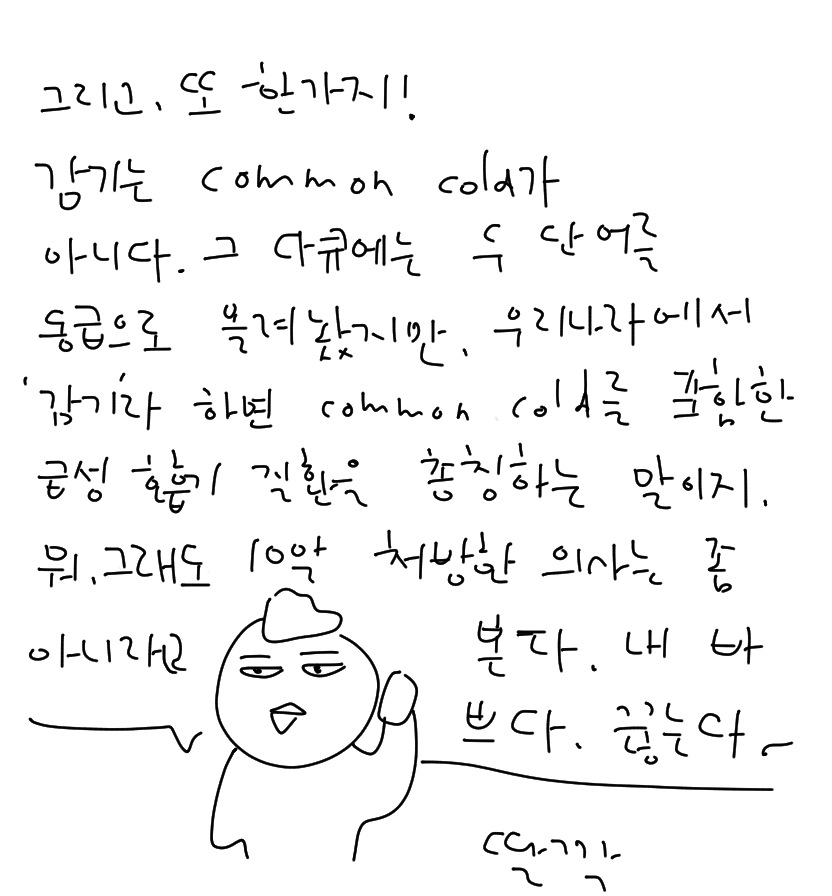 그리고, 또 한가지!
감기는 common cold가
아니다. 그 다큐에는 두 단어를
동급으로 올려놨지만, 우리나라에서
'감기'라 하면 common cold를 포함한
급성 호흡기 질환을 총칭하는 말이지.
뭐, 그래도 10약 처방한 의사는 좀
아니라고 본다. 내 바
쁘다. 끊는다~
딸각